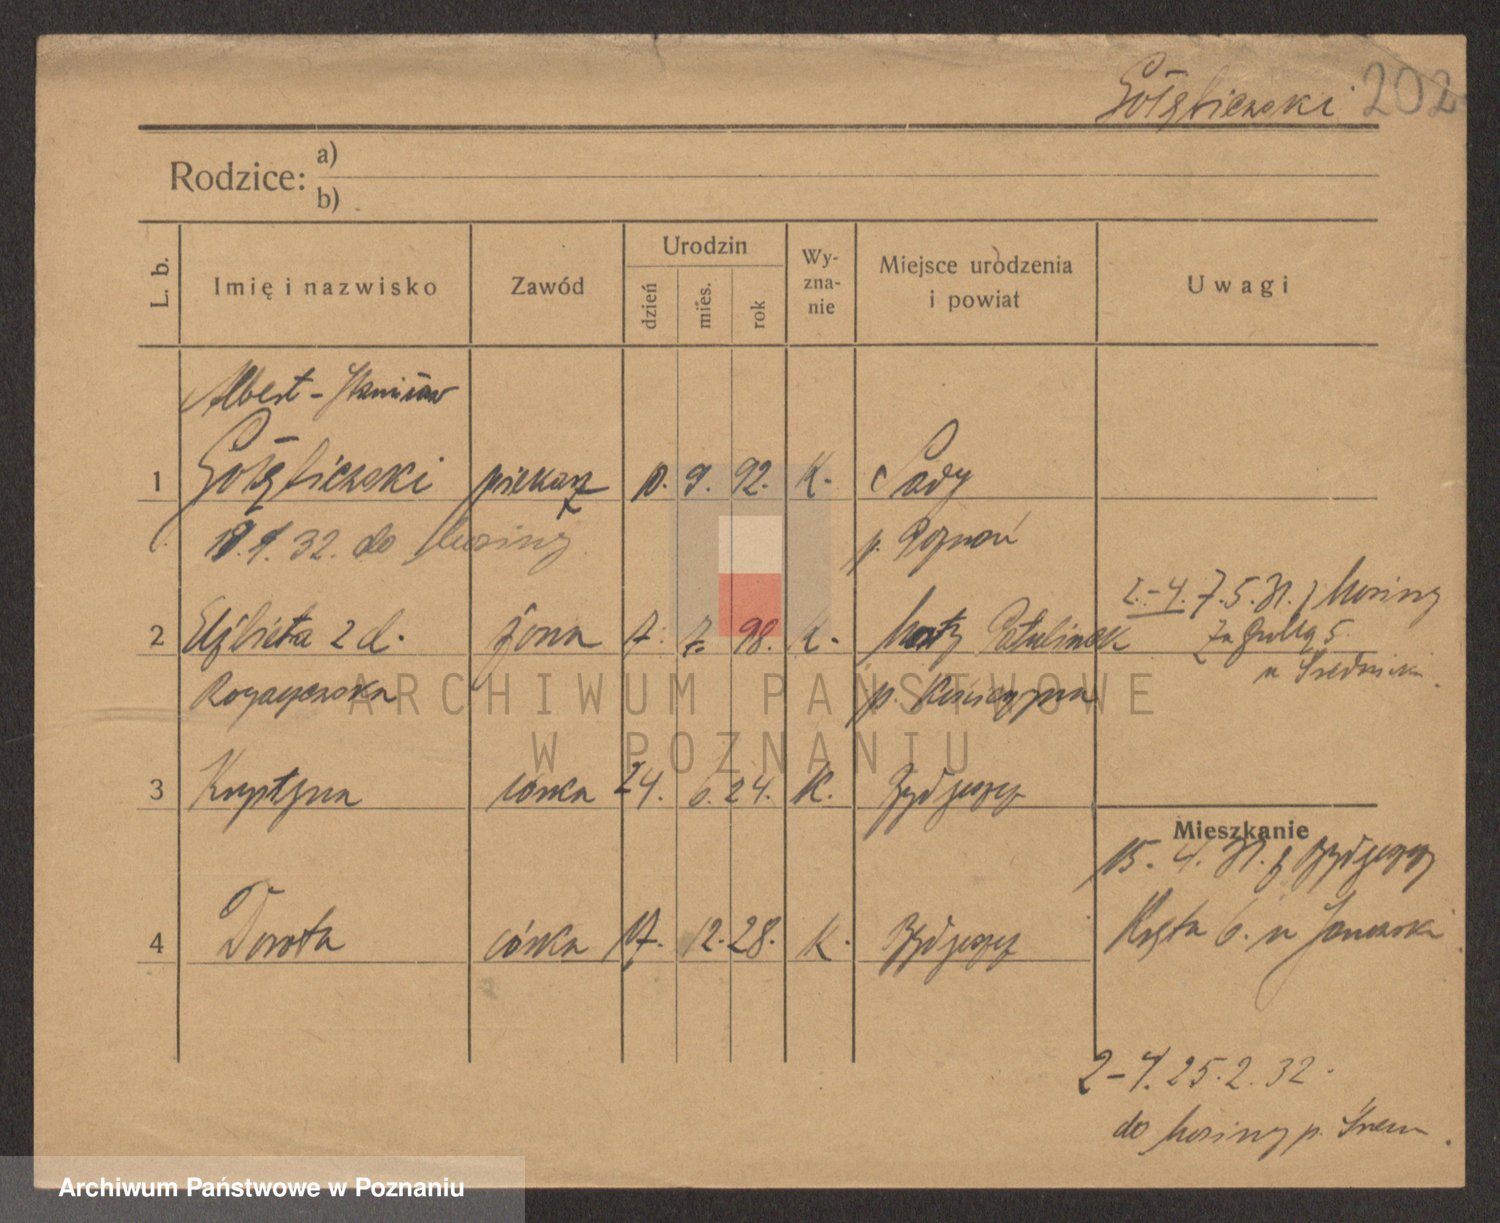 Gołębiewski 202
Rodzice: a)
b)
L. b. Imię i nazwisko Zawód Urodzin dzień mies. rok Wy-zna-nie Miejsce urodzenia i powiat Uwagi
Albert - Stanisław
1 Gołębiewski piekarz 10. 9. 92. K. Sady
32. do Mosiny p. Poznań
2.-4. 7.5.31. z Mosiny
2 Elżbieta 2 d. żona 7. 7. 98. K.
5.
p. Kościerzyna
ARCHIWUM PAŃSTWOWE
W POZNANIU
3 Krystyna córka 24. 6. 24. K. Bydgoszcz
Mieszkanie
15. 4. 31. z Bydgoszczy
4 Dorota córka 17. 12. 28. K. Bydgoszcz
6. u
2-4. 25. 2. 32.
do Mosiny p. Śrem.
Archiwum Państwowe w Poznaniu